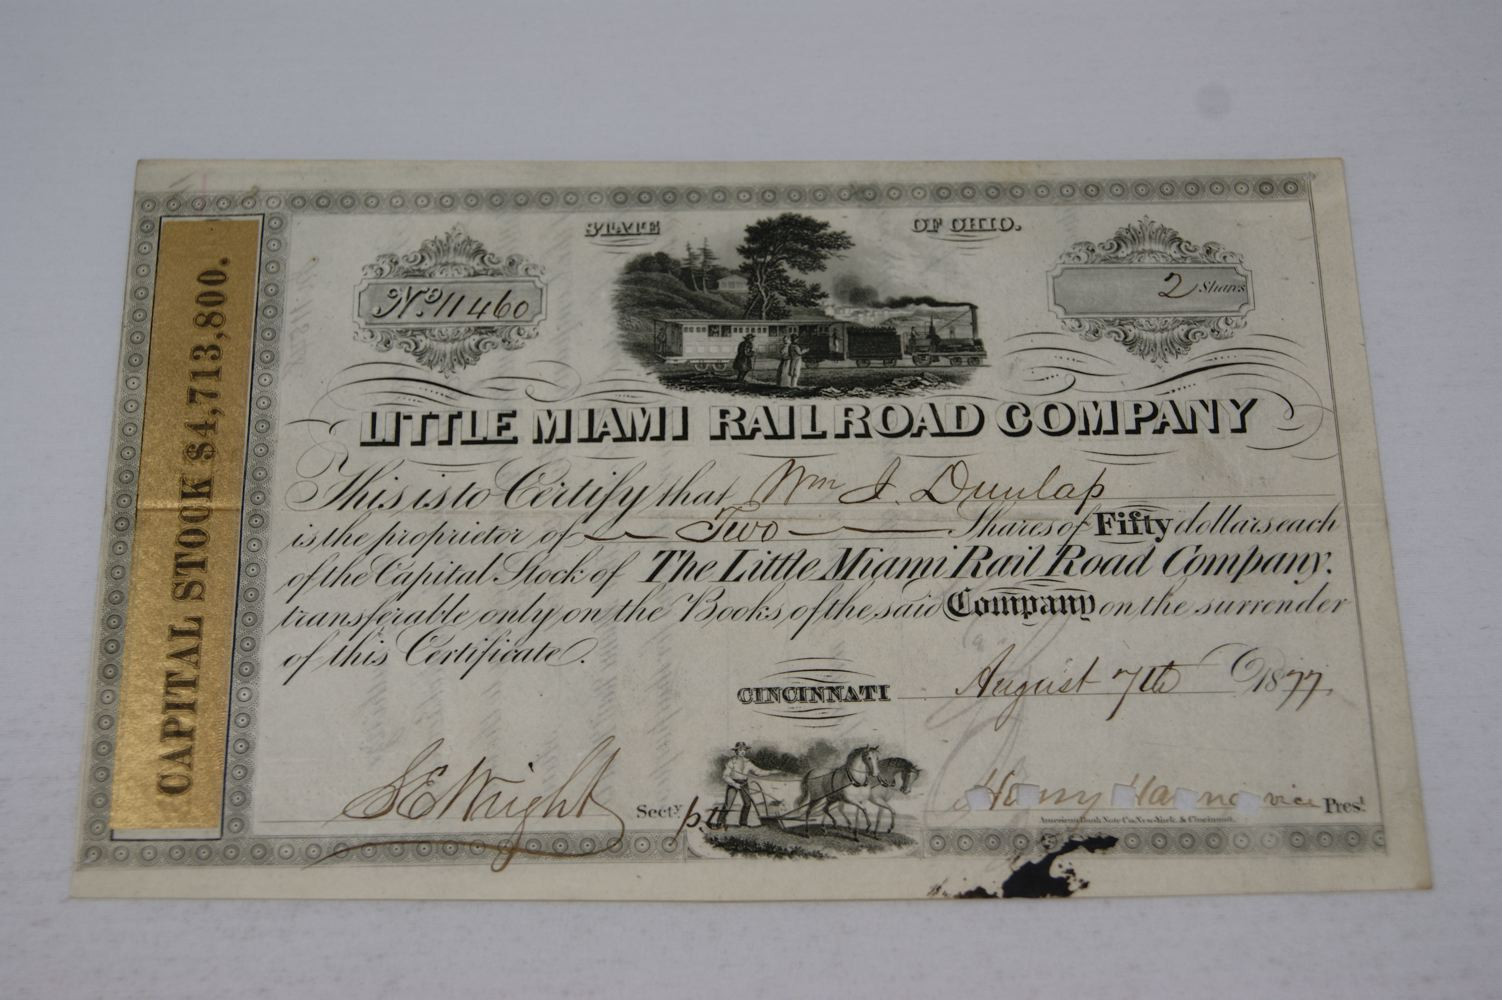 STATE OF OHIO.
No 11460
2 Shares
CAPITAL STOCK $4,713,800.
LITTLE MIAMI RAILROAD COMPANY
This is to Certify that Wm J. Dunlap
is the proprietor of Two Shares of Fifty dollars each
of the Capital Stock of The Little Miami Rail Road Company.
transferable only on the Books of the said Company on the surrender
of this Certificate.
CINCINNATI August 7th 1877
S E Wright Secty. Henry Hanna vice Prest.
American Bank Note Co. New-York, & Cincinnati.